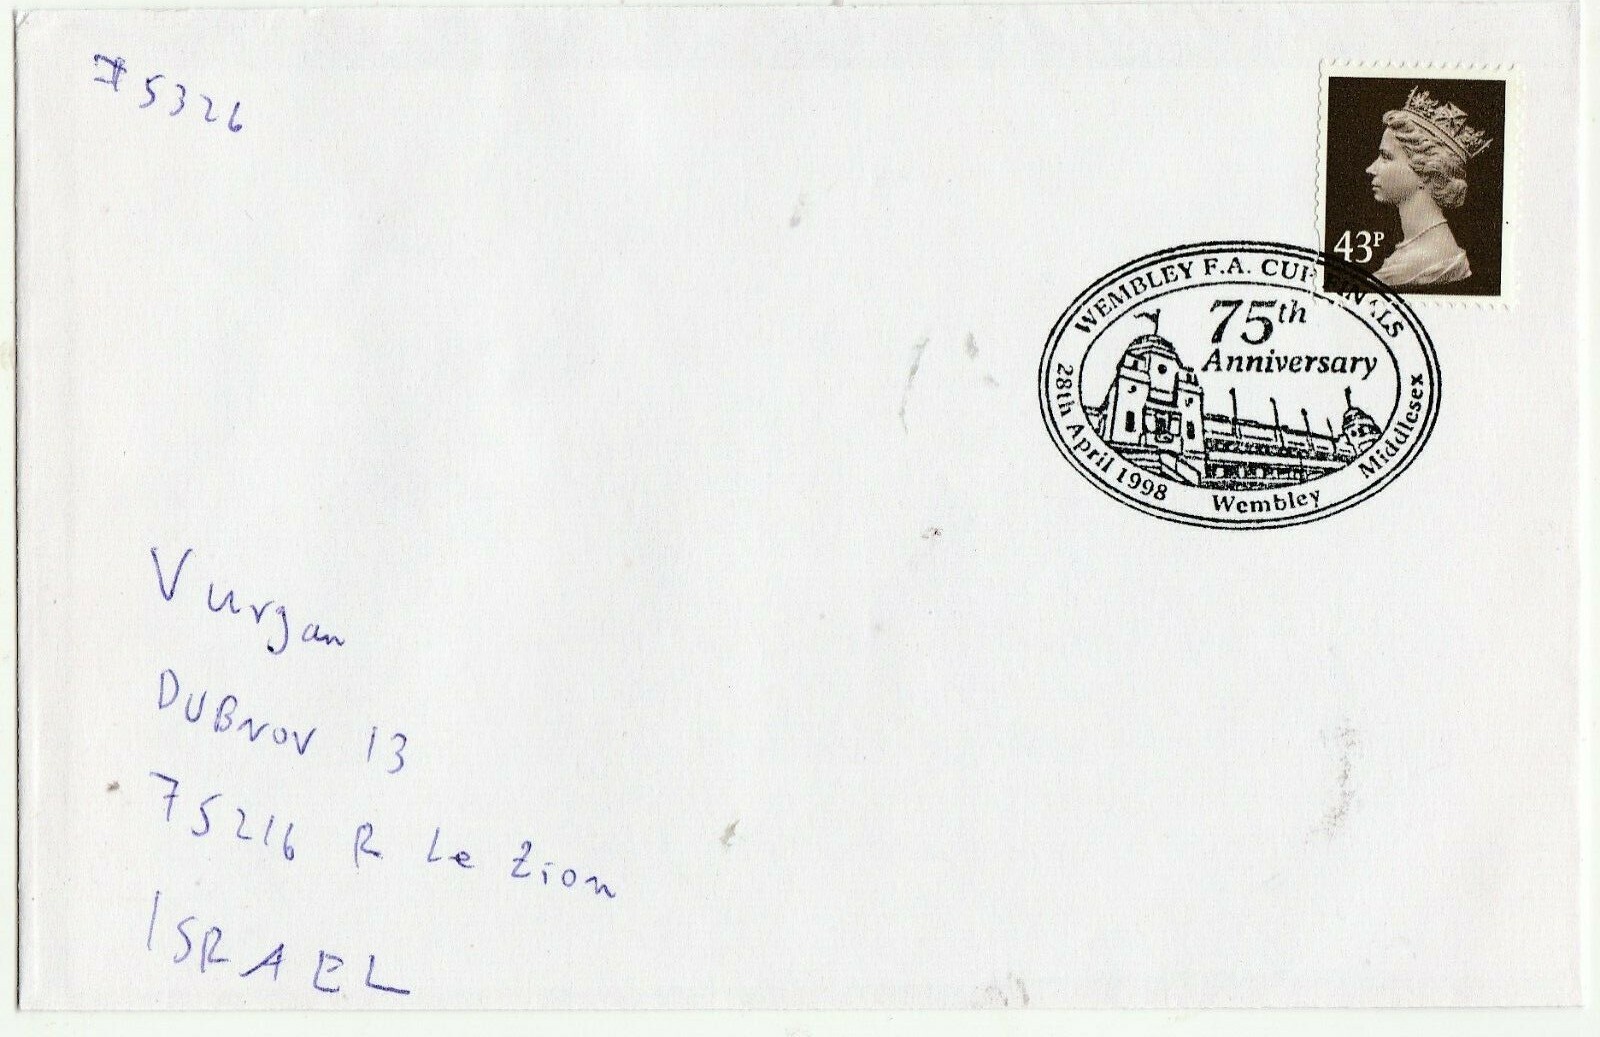 # 5326
43P
WEMBLEY F.A. CUP FINALS
75th
Anniversary
28th April 1998 Wembley Middlesex
Vurgan
DUBNOV 13
75216 R Le Zion
ISRAEL